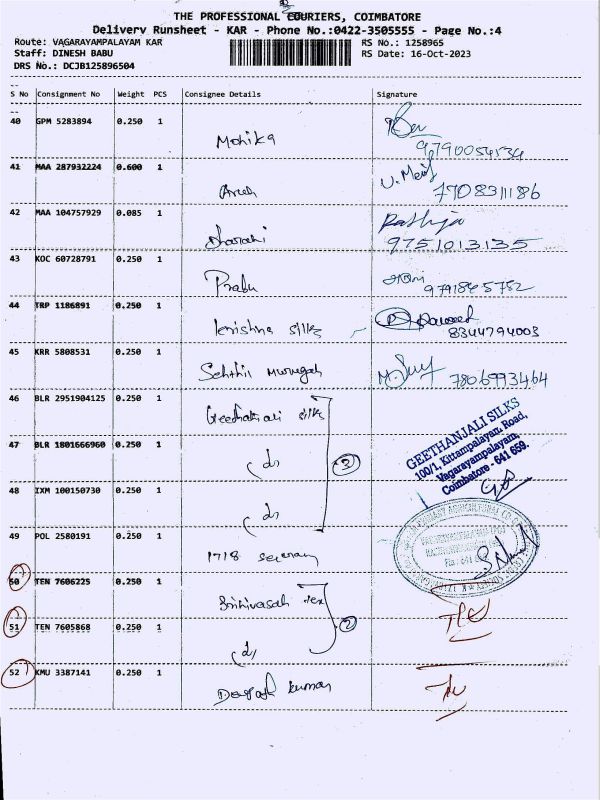 THE PROFESSIONAL COURIERS, COIMBATORE
Delivery Runsheet - KAR - Phone No.:0422-3505555 - Page No.:4
Route: VAGARAYAMPALAYAM KAR RS No.: 1258965
Staff: DINESH BABU RS Date: 16-Oct-2023
DRS No.: DCJB125896504
S No Consignment No Weight PCS Consignee Details Signature
40 GPM 5283894 0.250 1
Mohika 9790054534
41 MAA 287932224 0.600 1
7708311186
42 MAA 104757929 0.085 1
Dharani Rathija
9751013135
43 KOC 60728791 0.250 1
Prabu 9791845752
44 TRP 1186891 0.250 1
krishna silks 8344794003
45 KRR 5808531 0.250 1
Senthil murugan 7806993464
46 BLR 2951904125 0.250 1
Geethanjali silks
GEETHANJALI SILKS
100/1, Kittampalayam Road,
Vagarayampalayam,
Coimbatore - 641 659.
47 BLR 1801666960 0.250 1
(d) 3
48 IXM 100150730 0.250 1
(d)
49 POL 2580191 0.250 1
1718
50 TEN 7606225 0.250 1
Srinivasan Tex
51 TEN 7605868 0.250 1
(d) 2
52 KMU 3387141 0.250 1
Deepak kumar